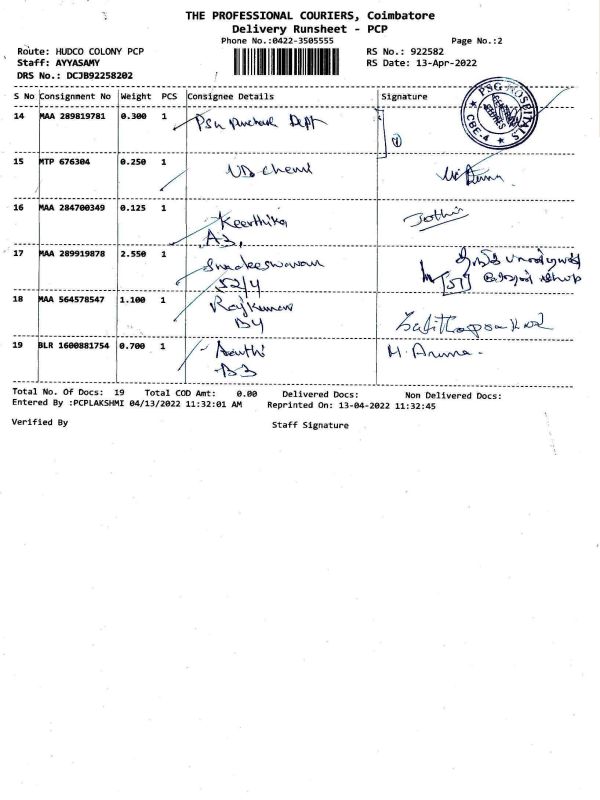 THE PROFESSIONAL COURIERS, Coimbatore
Delivery Runsheet - PCP
Phone No.:0422-3505555 Page No.:2
Route: HUDCO COLONY PCP RS No.: 922582
Staff: AYYASAMY RS Date: 13-Apr-2022
DRS No.: DCJB92258202
S No Consignment No Weight PCS Consignee Details Signature
PSG HOSPITALS
CBE-4
14 MAA 289819781 0.300 1 PSG Purchase Dept
15 MTP 676304 0.250 1
16 MAA 284700349 0.125 1 Keerthika Jothi
A3,
17 MAA 289919878 2.550 1
52/4
18 MAA 564578547 1.100 1 Rajkumar
B4
19 BLR 1600881754 0.700 1 M. Aruna
B3
Total No. Of Docs: 19 Total COD Amt: 0.00 Delivered Docs: Non Delivered Docs:
Entered By :PCPLAKSHMI 04/13/2022 11:32:01 AM Reprinted On: 13-04-2022 11:32:45
Verified By Staff Signature